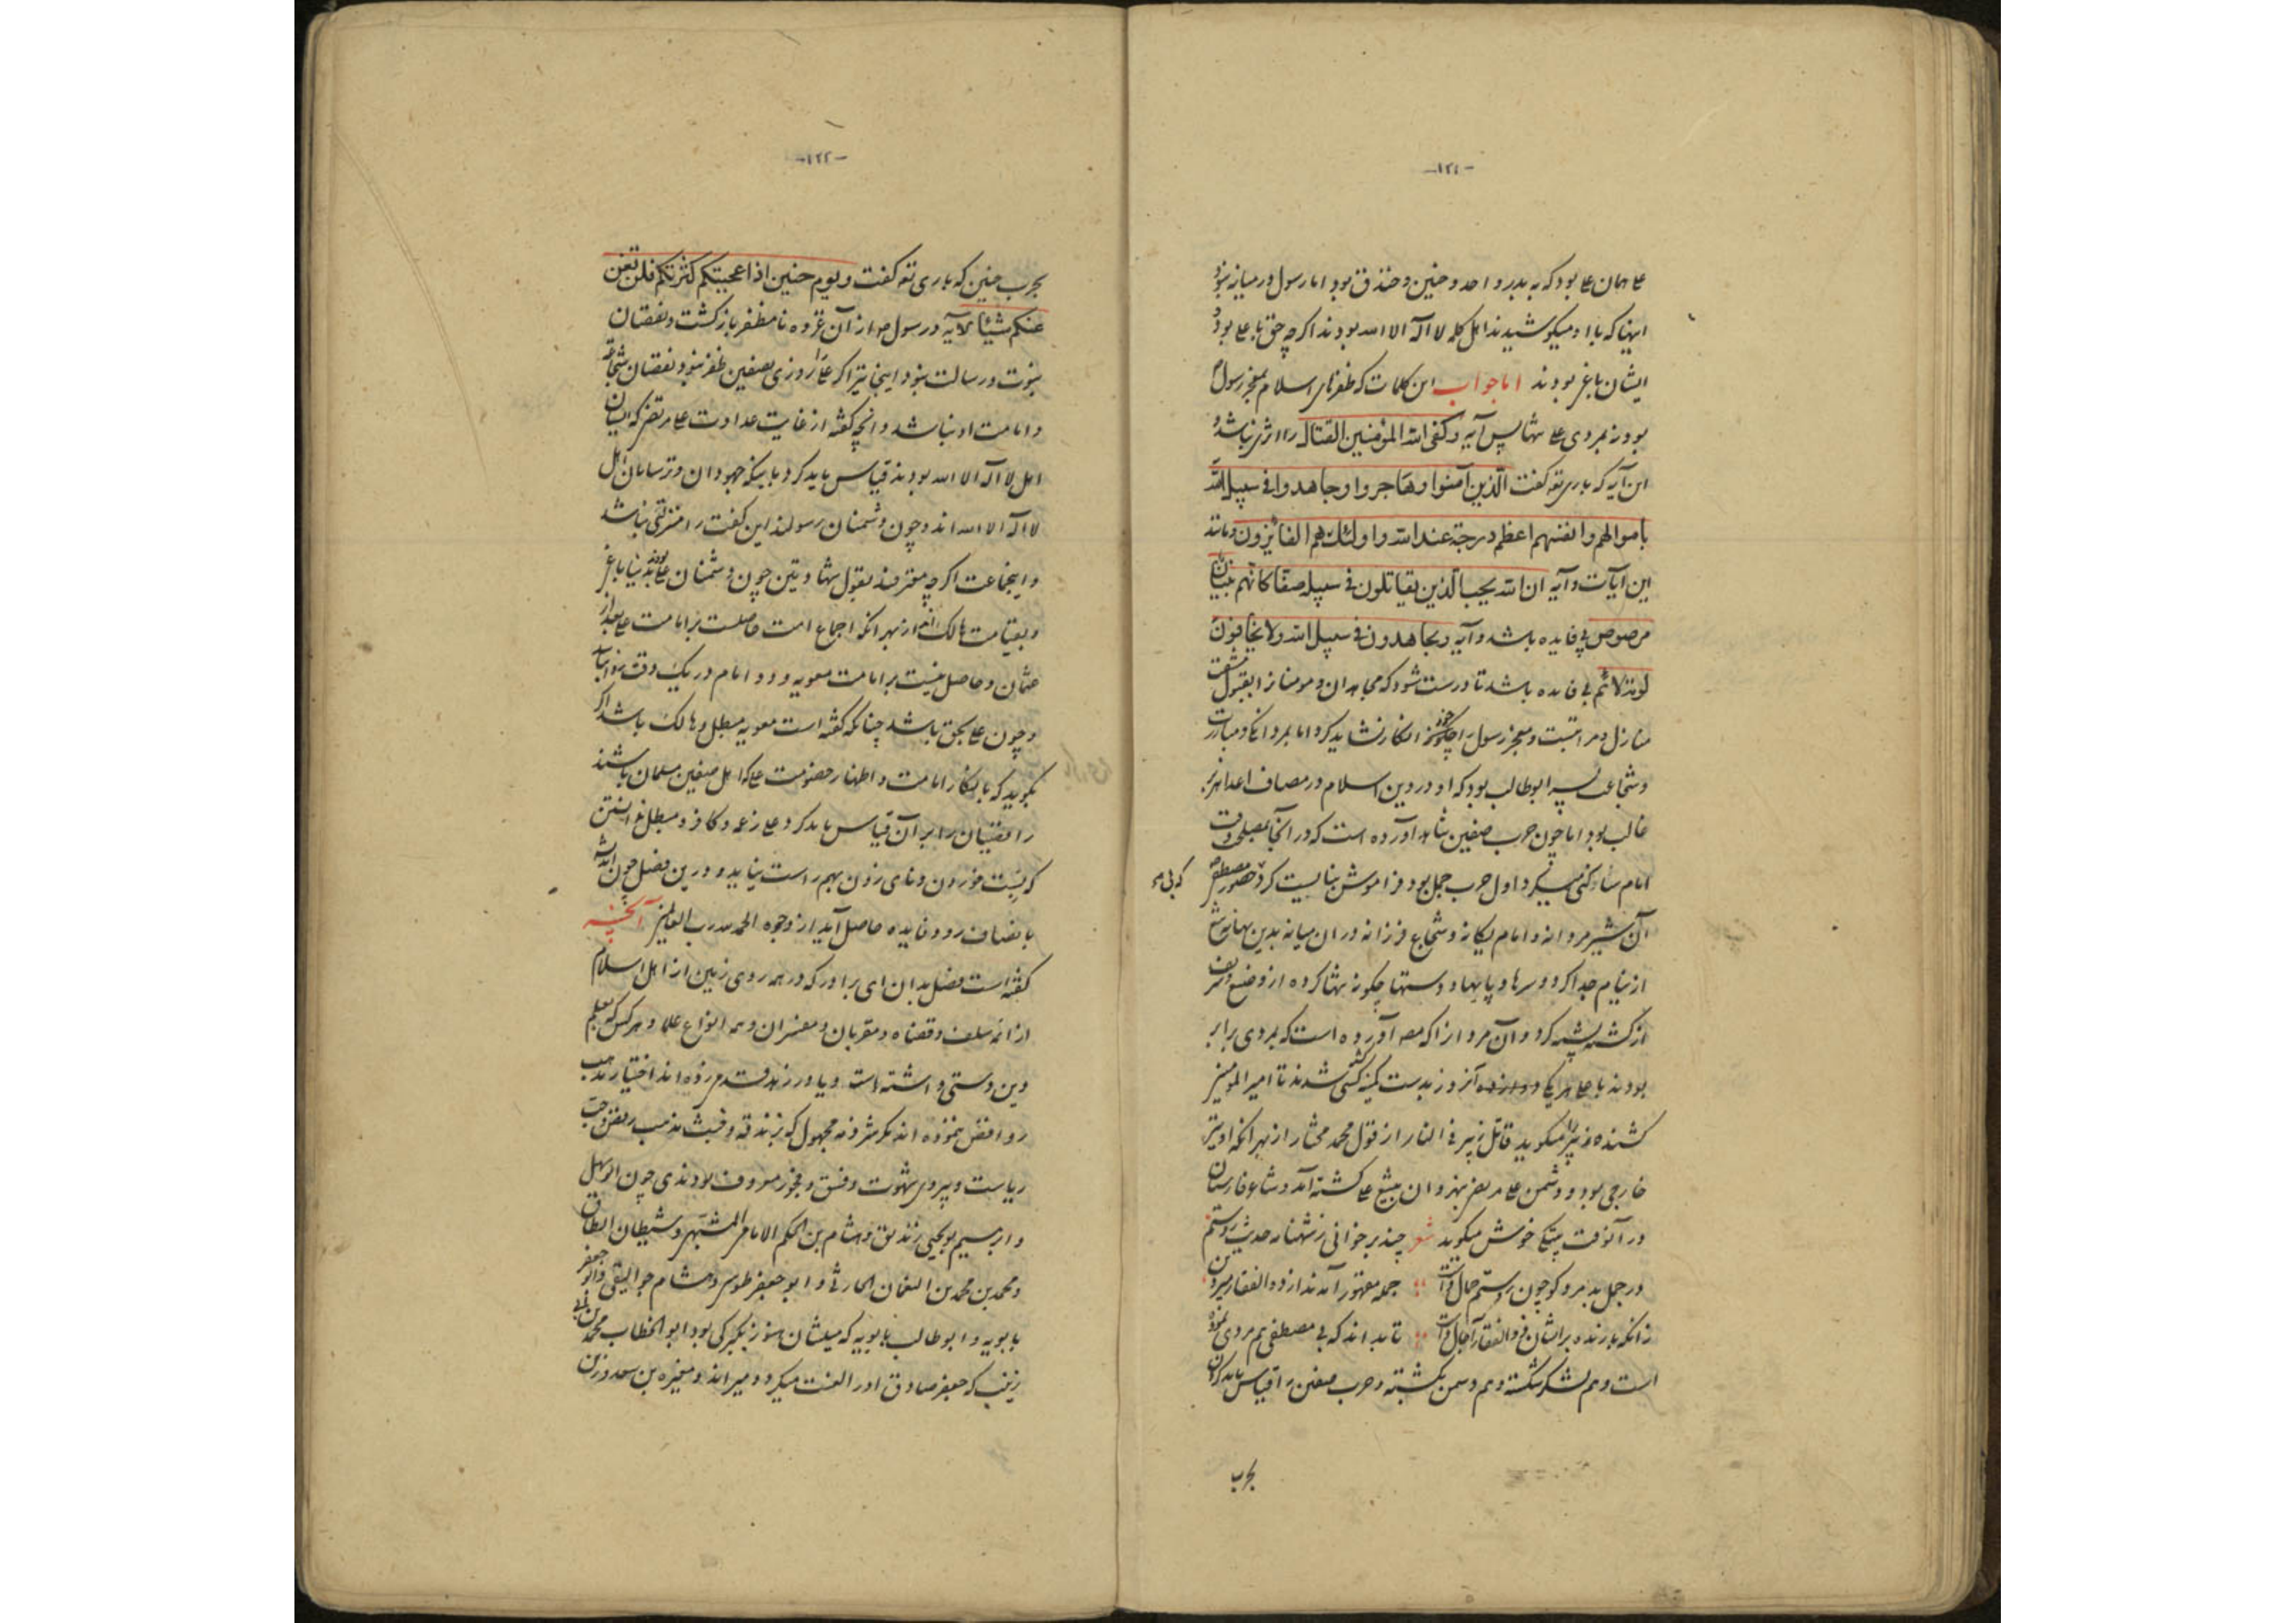 -۱۲۱-
علی همان علی بود که به بدر و احد و حنین و خندق بود اما رسول در میانه نبود
اینها که با او میکوشیدند اهل کلمه لا اله الا الله بودند اگرچه حق با علی بود و
ایشان باغی بودند اما جواب این کلمات که ظفرهای اسلام بمعجز رسول
بود و نه بمردی علی تنها پس آیه وکفی الله المؤمنین القتال را اثری نباشد و
این آیه که باری تع گفت الذین آمنوا وهاجروا وجاهدوا فی سبیل الله
باموالهم وانفسهم اعظم درجة عند الله واولئک هم الفائزون و مانند
این آیات و آیه ان الله یحب الذین یقاتلون فی سبیله صفا کانهم بنیان
مرصوص بی فایده باشد و آیه ویجاهدون فی سبیل الله ولا یخافون
لومة لائم بی فایده باشد تا درست شود که مجاهدان و مومنانرا بقبول مشقت
منازل و مراتبست و معجز رسول را چگونه خود انکار نشاید کرد اما بمردانگی و مبارزت
و شجاعت پسر ابوطالب بود که او در دین اسلام در مصاف اعدا هزبر
غالب بود اما چون حرب صفین بشاهد آورده است که در آنجا بمصلحت وقت
امام ساکنی میکرد اول حرب جمل بود فراموش نبایست کرد حضور مصطفی
که بی
آن شیر مردانه و امام یگانه و شجاع فرزانه در ان میانه بدین بهانه تیغ
از نیام جدا کرد و سرها و پایها و دستها چگونه نثار کرده از وضیع و شریف
از کشته پشته کرد و آن مرد را که مصـ آورده است که بمردی برابر
بودند با علی هر یکی دوازده آنروز بدست کمینه کسی کشته شدند تا امیر المومنین
کشنده زبیر را میگوید قاتل زبیر فی النار از قول محمد مختار از بهر انکه او نیز
خارجی بود و دشمن علی مرتضی بنهروان بتیغ علی کشته آمد و شاعر فارسیان
در آنوقت بیتکی خوش میگوید شعر چند برخوانی ز شهنامه حدیث رستم
در جمل بد مرد کو چون رستم حال داشت جمله مقهور آمدند از ذوالفقار میر دین
زانکه بارنده بر ایشان ذوالفقار آجال داشت تا بداند که بی مصطفی هم مردی نموده
است و هم لشکر شکسته و هم دشمن بکشته و حرب صفین را قیاس باید کردن
بحرب
-۱۲۲-
بحرب حنین که باری تع گفت ویوم حنین اذ اعجبتکم کثرتکم فلن تغن
عنکم شیئا الآیه و رسول ص از آن غزوه نامظفر بازگشت و نقصان
نبوت و رسالت نبود اینجا نیز اگر علی را روزی بصفین ظفر نبود نقصان شجاعت
و امامت او نباشد و انچه گفته از غایت عداوت علی مرتضی که ایشان
اهل لا اله الا الله بودند قیاس باید کرد با اینکه جهودان و ترسایان اهل
لا اله الا الله اند و چون دشمنان رسولند این گفت را منزلتی نباشد
و اینجماعت اگرچه معترفند بقول شهادتین چون دشمنان علی بودند بدنیا باغی
و بقیامت هالک اند از بهر انکه اجماع امت حاصلست بر امامت علی بعد از
عثمان و حاصل نیست بر امامت معویه و دو امام در یک وقت نتواند
و چون علی بحق باشد چنانکه گفته است معویه مبطل و هالک باشد اگر
بگوید که با انکار امامت و اظهار خصومت علی که اهل صفین مسلمان باشند
رافضیان را بر آن قیاس باید کرد علی زعمه و کافر و مبطل نداشتن
که پست خوردن و نای زدن بهم راست نیاید و درین فصل چون اندیشه
بانصاف رود فایده حاصل آید از وجوه الحمد لله رب العالمین آنچه
گفته است فصل بدان ای برادر که در همه روی زمین از اهل اسلام
از ائمه سلف و قضاة و مقریان و مفسران و همه انواع علما و هر کس که بعلم
دین دستی داشته است و یا در زهد قدم زده اند اختیار مذهب
روافض ننموده اند مگر شرذمه مجهول که بزندقه و خبث مذهب رفض و حب
ریاست و پیروی شهوت و فسق و فجور معروف بودندی چون ابو سهل
و ابرهیم بو یحیی زندیق و هشام بن الحکم الامام المشبهی و شیطان الطاق
و محمد بن محمد بن النعمان الحارثی و ابو جعفر طوسی و هشام جوالیقی و ابو جعفر
بابویه و ابو طالب بابویه که میلشان هنوز بگبرکی بود ابو الخطاب محمد بن ابی
زینب که جعفر صادق او را لعنت میکرد و میراند و مغیره بن سعد و زن